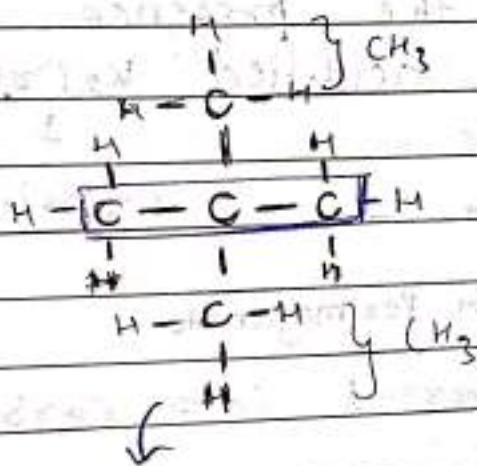 H
H - C - H } CH3
H H
H - C - C - C - H
H H
H - C - H } CH3
H